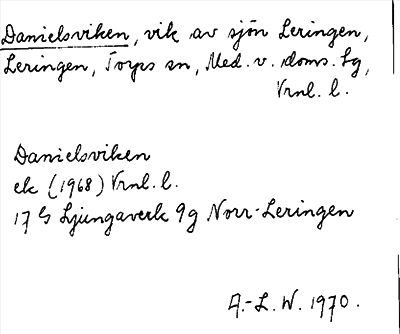 Danielsviken, vik av sjön Leringen,
Leringen, Torps sn, Med. v. doms. sg,
Vrnl. l.
Danielsviken
ek (1968) Vrnl. l.
17 G Ljungaverk 9g Norr-Leringen
A.-L. W. 1970.